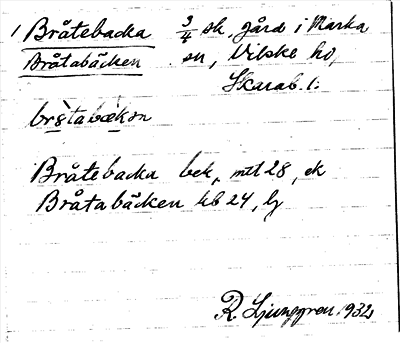 1 Bråtebacka 3/4 sk. gård i Marka
Bråtabäcken sn, Vilske hd,
Skarab. l.
br8̀tabækən
Bråtebacka bek, mtl 28, ek
Bråtabäcken kb 24, lj
R. Ljunggren 1932